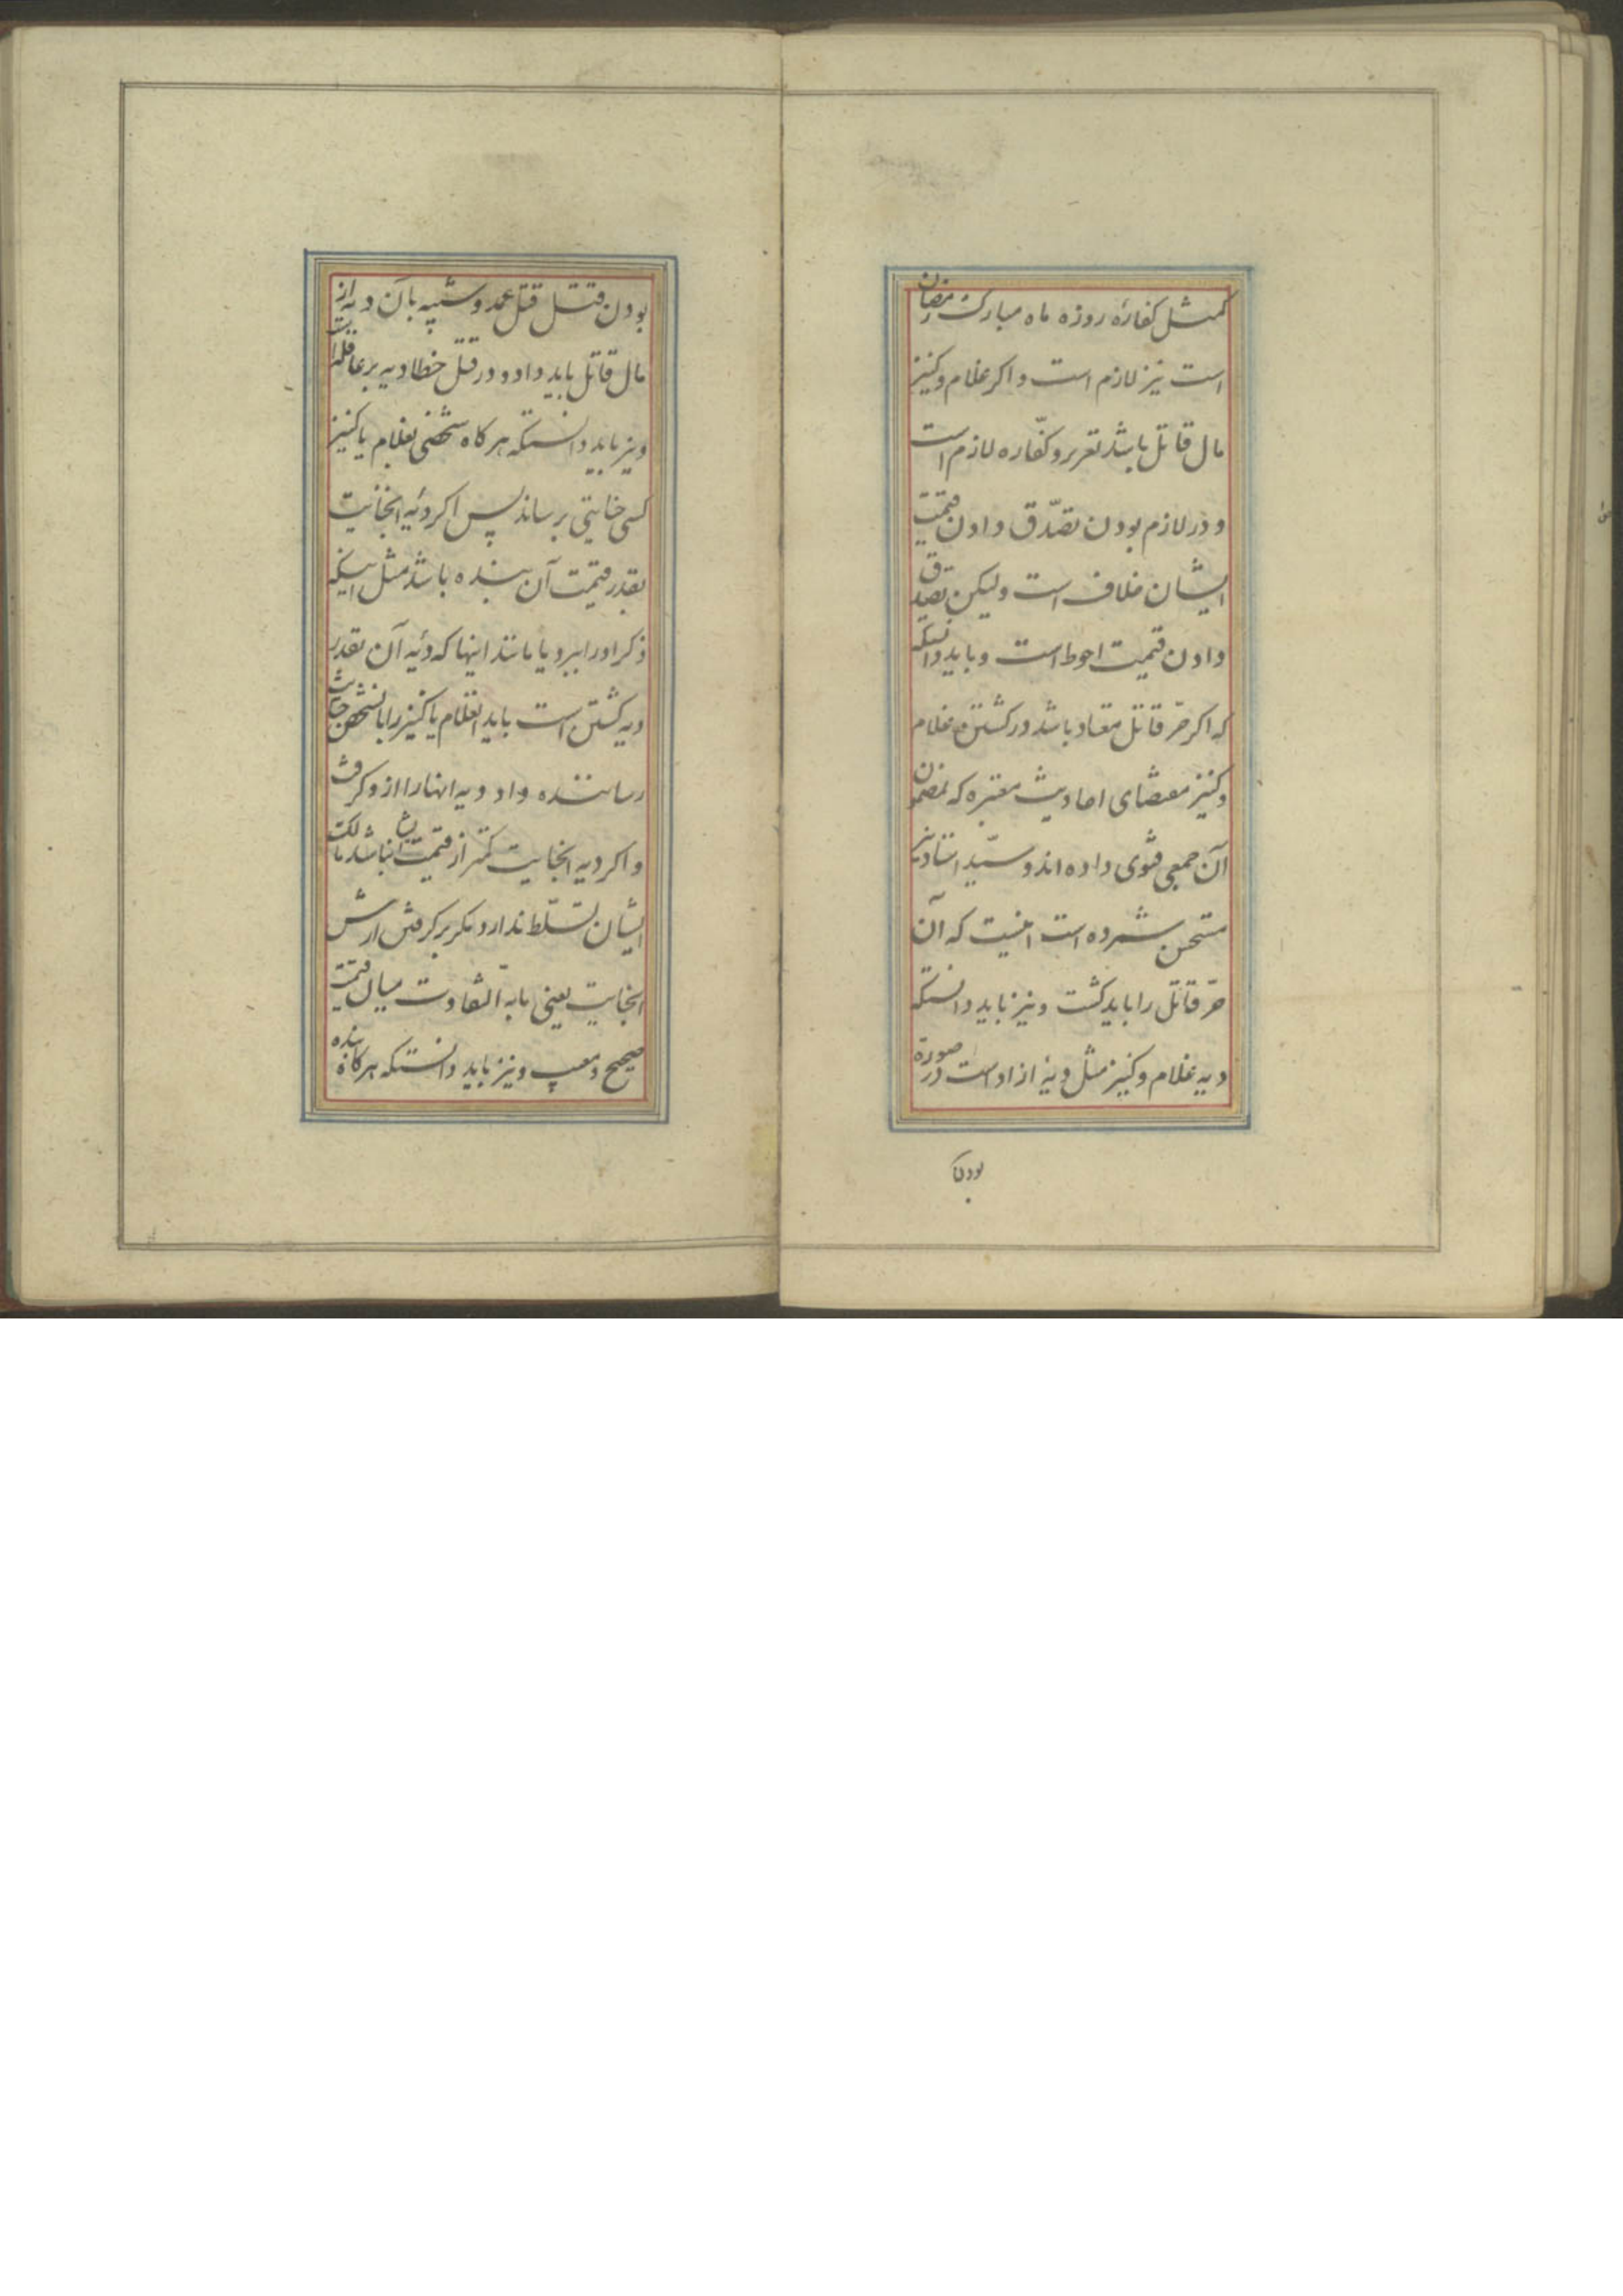 کمثل کفاره روزه ماه مبارک رمضان
است نیز لازم است و اکر غلام و کنیز
مال قاتل باشد تعزیر و کفّاره لازم است
و در لازم بودن تصدّق دادن قیمت
ایشان خلاف است ولیکن تصدق
دادن قیمت احوط است و باید دانستکه
که اکر حرّ قاتل معتاد باشد در کشتن غلام
و کنیز مقتضای احادیث معتبره که بمضمون
آن جمعی فتوی داده اند و سیّد استاد نیز
مستحسن شمرده است اینست که آن
حرّ قاتل را باید کشت و نیز باید دانستکه
دیه غلام و کنیز مثل دیهٔ ازاد است در صورة
بودن
بودن قتل قتل عمد و شبیه بآن دیه از
مال قاتل باید داد و در قتل خطا دیه بر عاقله است
و نیز باید دانستکه هر کاه شخصی بغلام یا کنیز
کسی جنایتی برساند پس اکر دیهٔ انجنایت
بقدر قیمت آن بنده باشد مثل اینکه
ذکر او را ببرد یا مانند اینها که دیهٔ آن بقدر
دیه کشتن است باید انغلام یا کنیز را بانشخص جنایت
رساننده داد و دیه انها را از او کرفت
و اکر دیه انجنایت کمتر از قیمت ایشان باشد مالک
ایشان تسلّط ندارد مکر بر کرفتن ارش
انجنایت یعنی مابه التفاوت میان قیمت
صحیح و معیب و نیز باید دانستکه هر کاه بنده